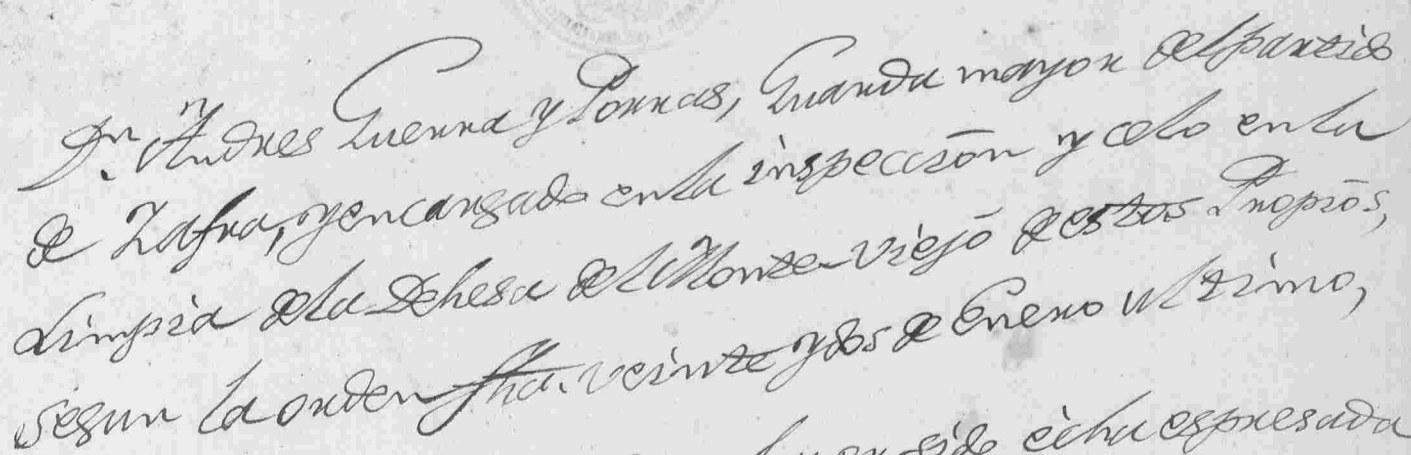 Dn. Andres Guerra y Porras, Guarda mayor del partido
de Zafra, y encargado en la inspección y celo en la
Limpia de la Dehesa del Monte-viejo de estos Propios,
segun la orden fha. veinte y dos de Enero ultimo,
sido echa espresada